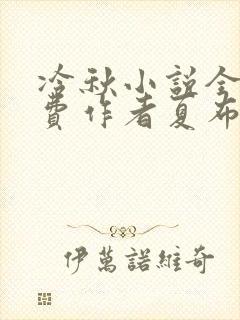 冷秋小説全
費作者夏布
伊萬諾維奇